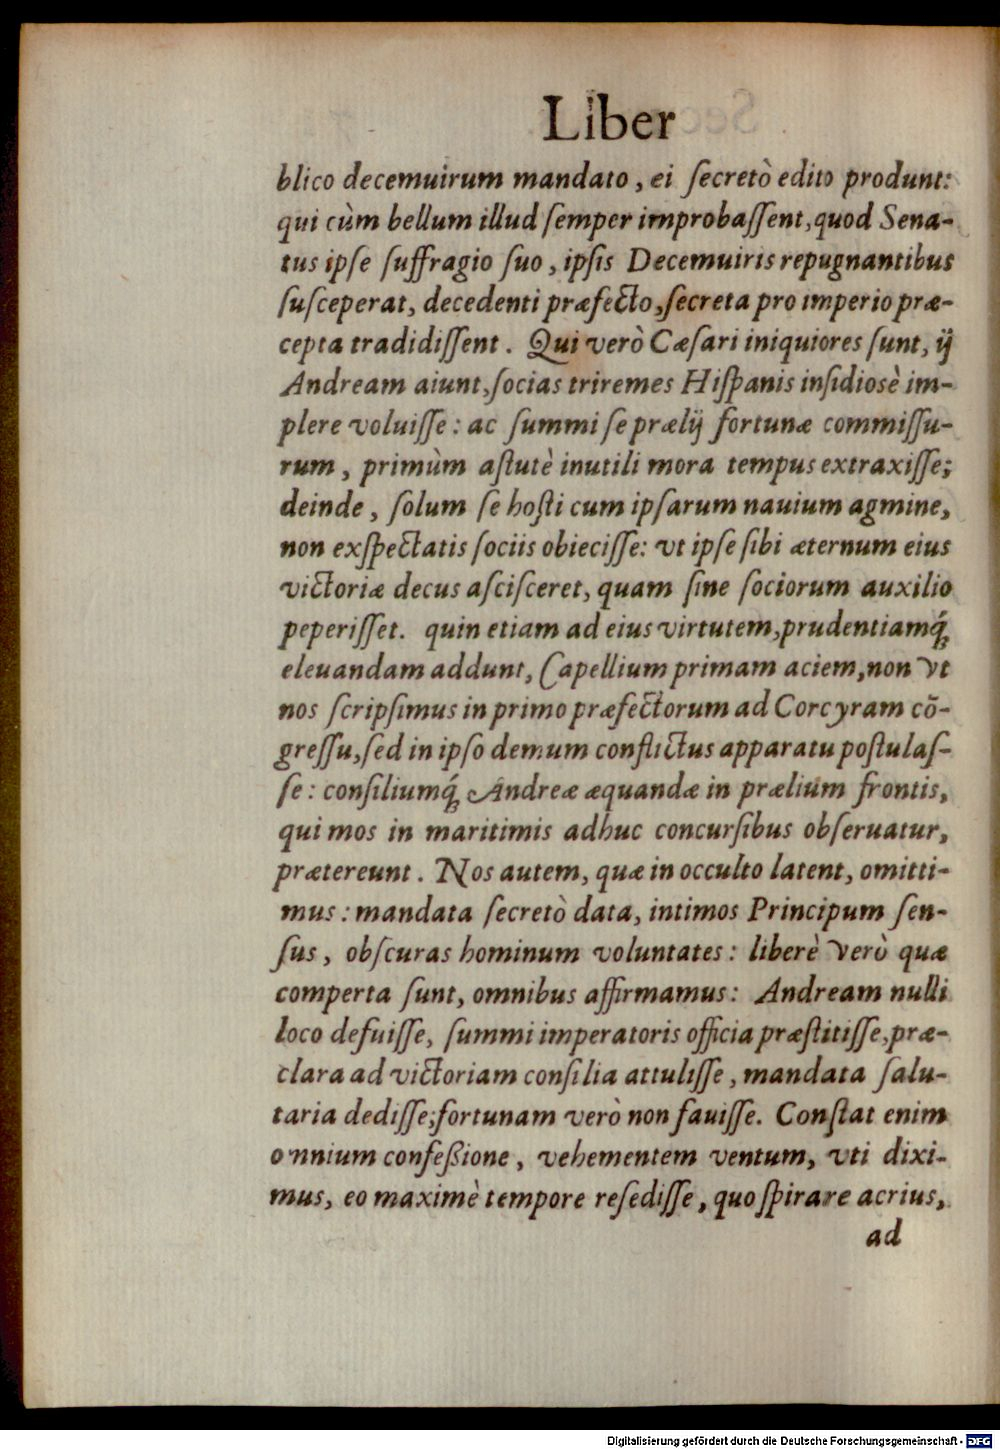 Liber
blico decemuirum mandato, ei ſecretò edito produnt:
qui cùm bellum illud ſemper improbaſſent, quod Sena-
tus ipſe ſuffragio ſuo, ipſis Decemuiris repugnantibus
ſuſceperat, decedenti præfecto, ſecreta pro imperio præ-
cepta tradidiſſent. Qui verò Cæſari iniquiores ſunt, ij
Andream aiunt, ſocias triremes Hiſpanis inſidiosè im-
plere voluiſſe: ac ſummi ſe prælij fortunæ commiſſu-
rum, primùm aſtutè inutili mora tempus extraxiſſe;
deinde, ſolum ſe hoſti cum ipſarum nauium agmine,
non exſpectatis ſociis obieciſſe: vt ipſe ſibi æternum eius
victoriæ decus aſciſceret, quam ſine ſociorum auxilio
peperiſſet. quin etiam ad eius virtutem, prudentiamq́;
eleuandam addunt, Capellium primam aciem, non vt
nos ſcripſimus in primo præfectorum ad Corcyram cō-
greſſu, ſed in ipſo demum conflictus apparatu poſtulaſ-
ſe: conſiliumq́; Andreæ æquandæ in prælium frontis,
qui mos in maritimis adhuc concurſibus obſeruatur,
prætereunt. Nos autem, quæ in occulto latent, omitti-
mus: mandata ſecretò data, intimos Principum ſen-
ſus, obſcuras hominum voluntates: liberè verò quæ
comperta ſunt, omnibus affirmamus: Andream nulli
loco defuiſſe, ſummi imperatoris officia præſtitiſſe, præ-
clara ad victoriam conſilia attuliſſe, mandata ſalu-
taria dediſſe; fortunam verò non fauiſſe. Conſtat enim
omnium confeßione, vehementem ventum, vti dixi-
mus, eo maximè tempore reſediſſe, quo ſpirare acrius,
ad
Digitalisierung gefördert durch die Deutsche Forschungsgemeinschaft - DFG